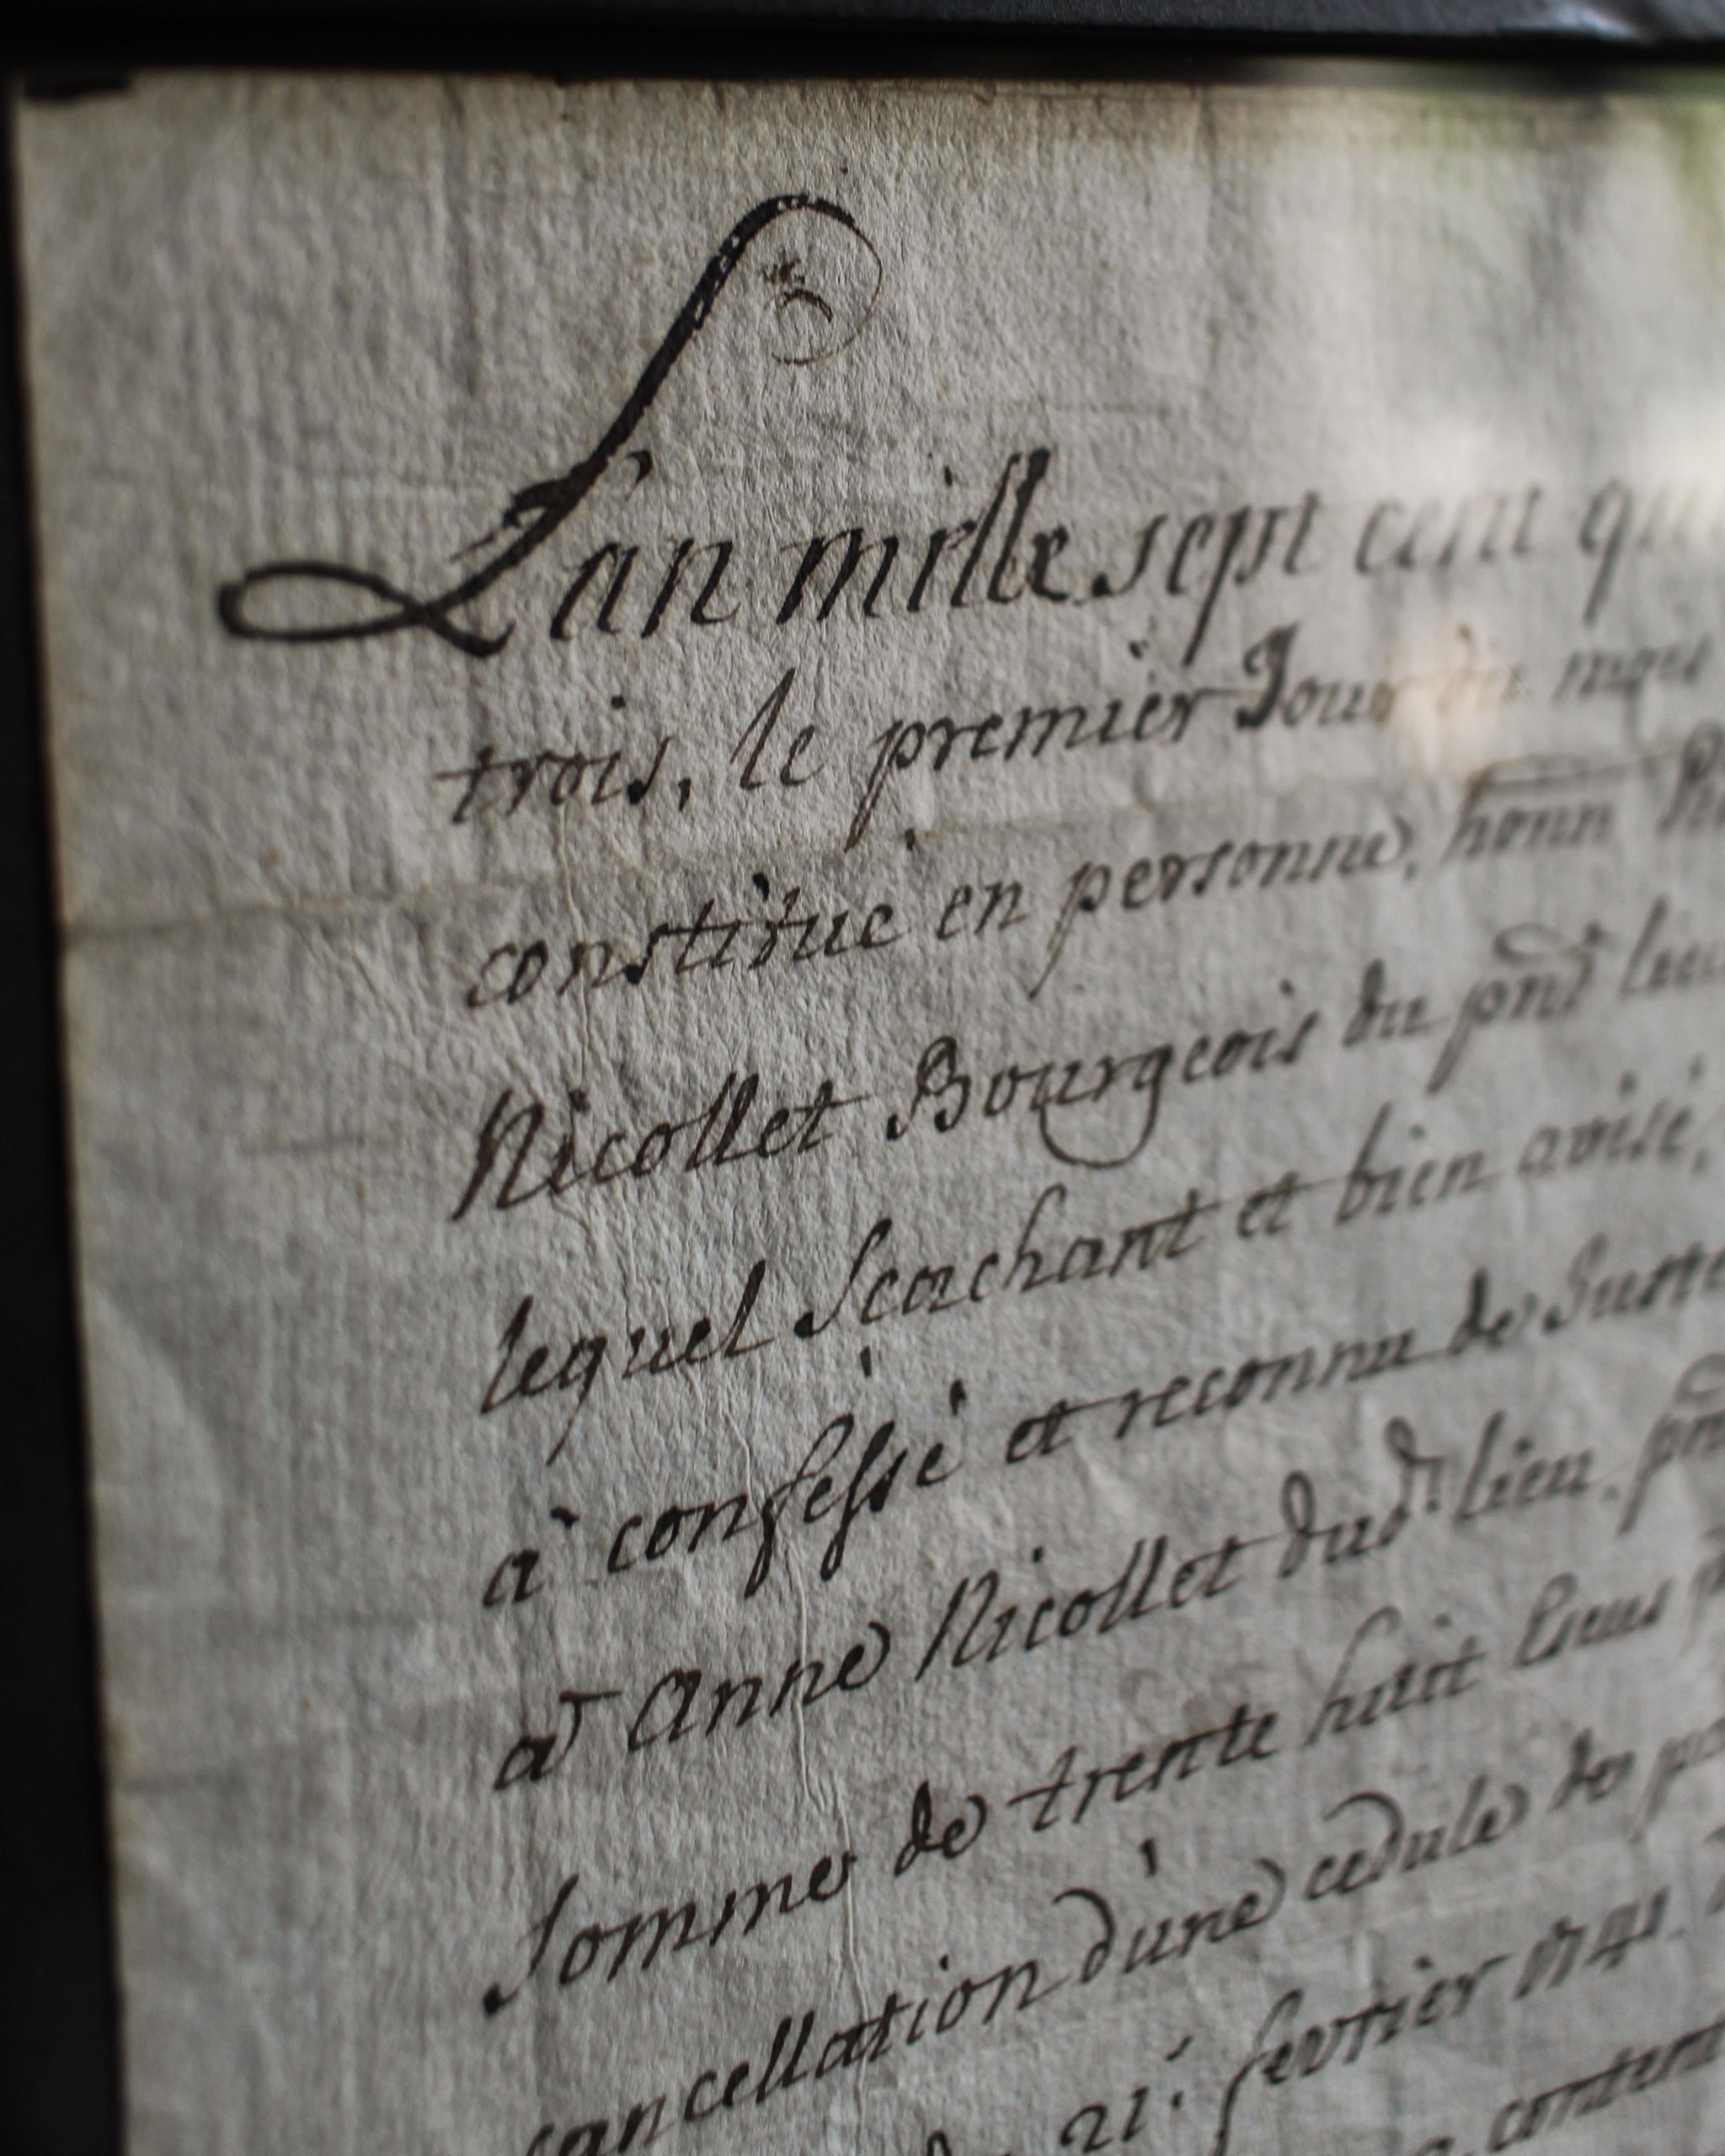 L'an mille sept cent qu
trois, le premier Jour du mois
constitue en personne, honn
Nicollet Bourgeois du pnt lieu
lequel Scachant et bien avisé,
à confessé et reconnu de Juste
à Anne Nicollet dud: lieu pnt
Somme de trente huit
cancellation d'une cedule de
21: fevrier 1741
content